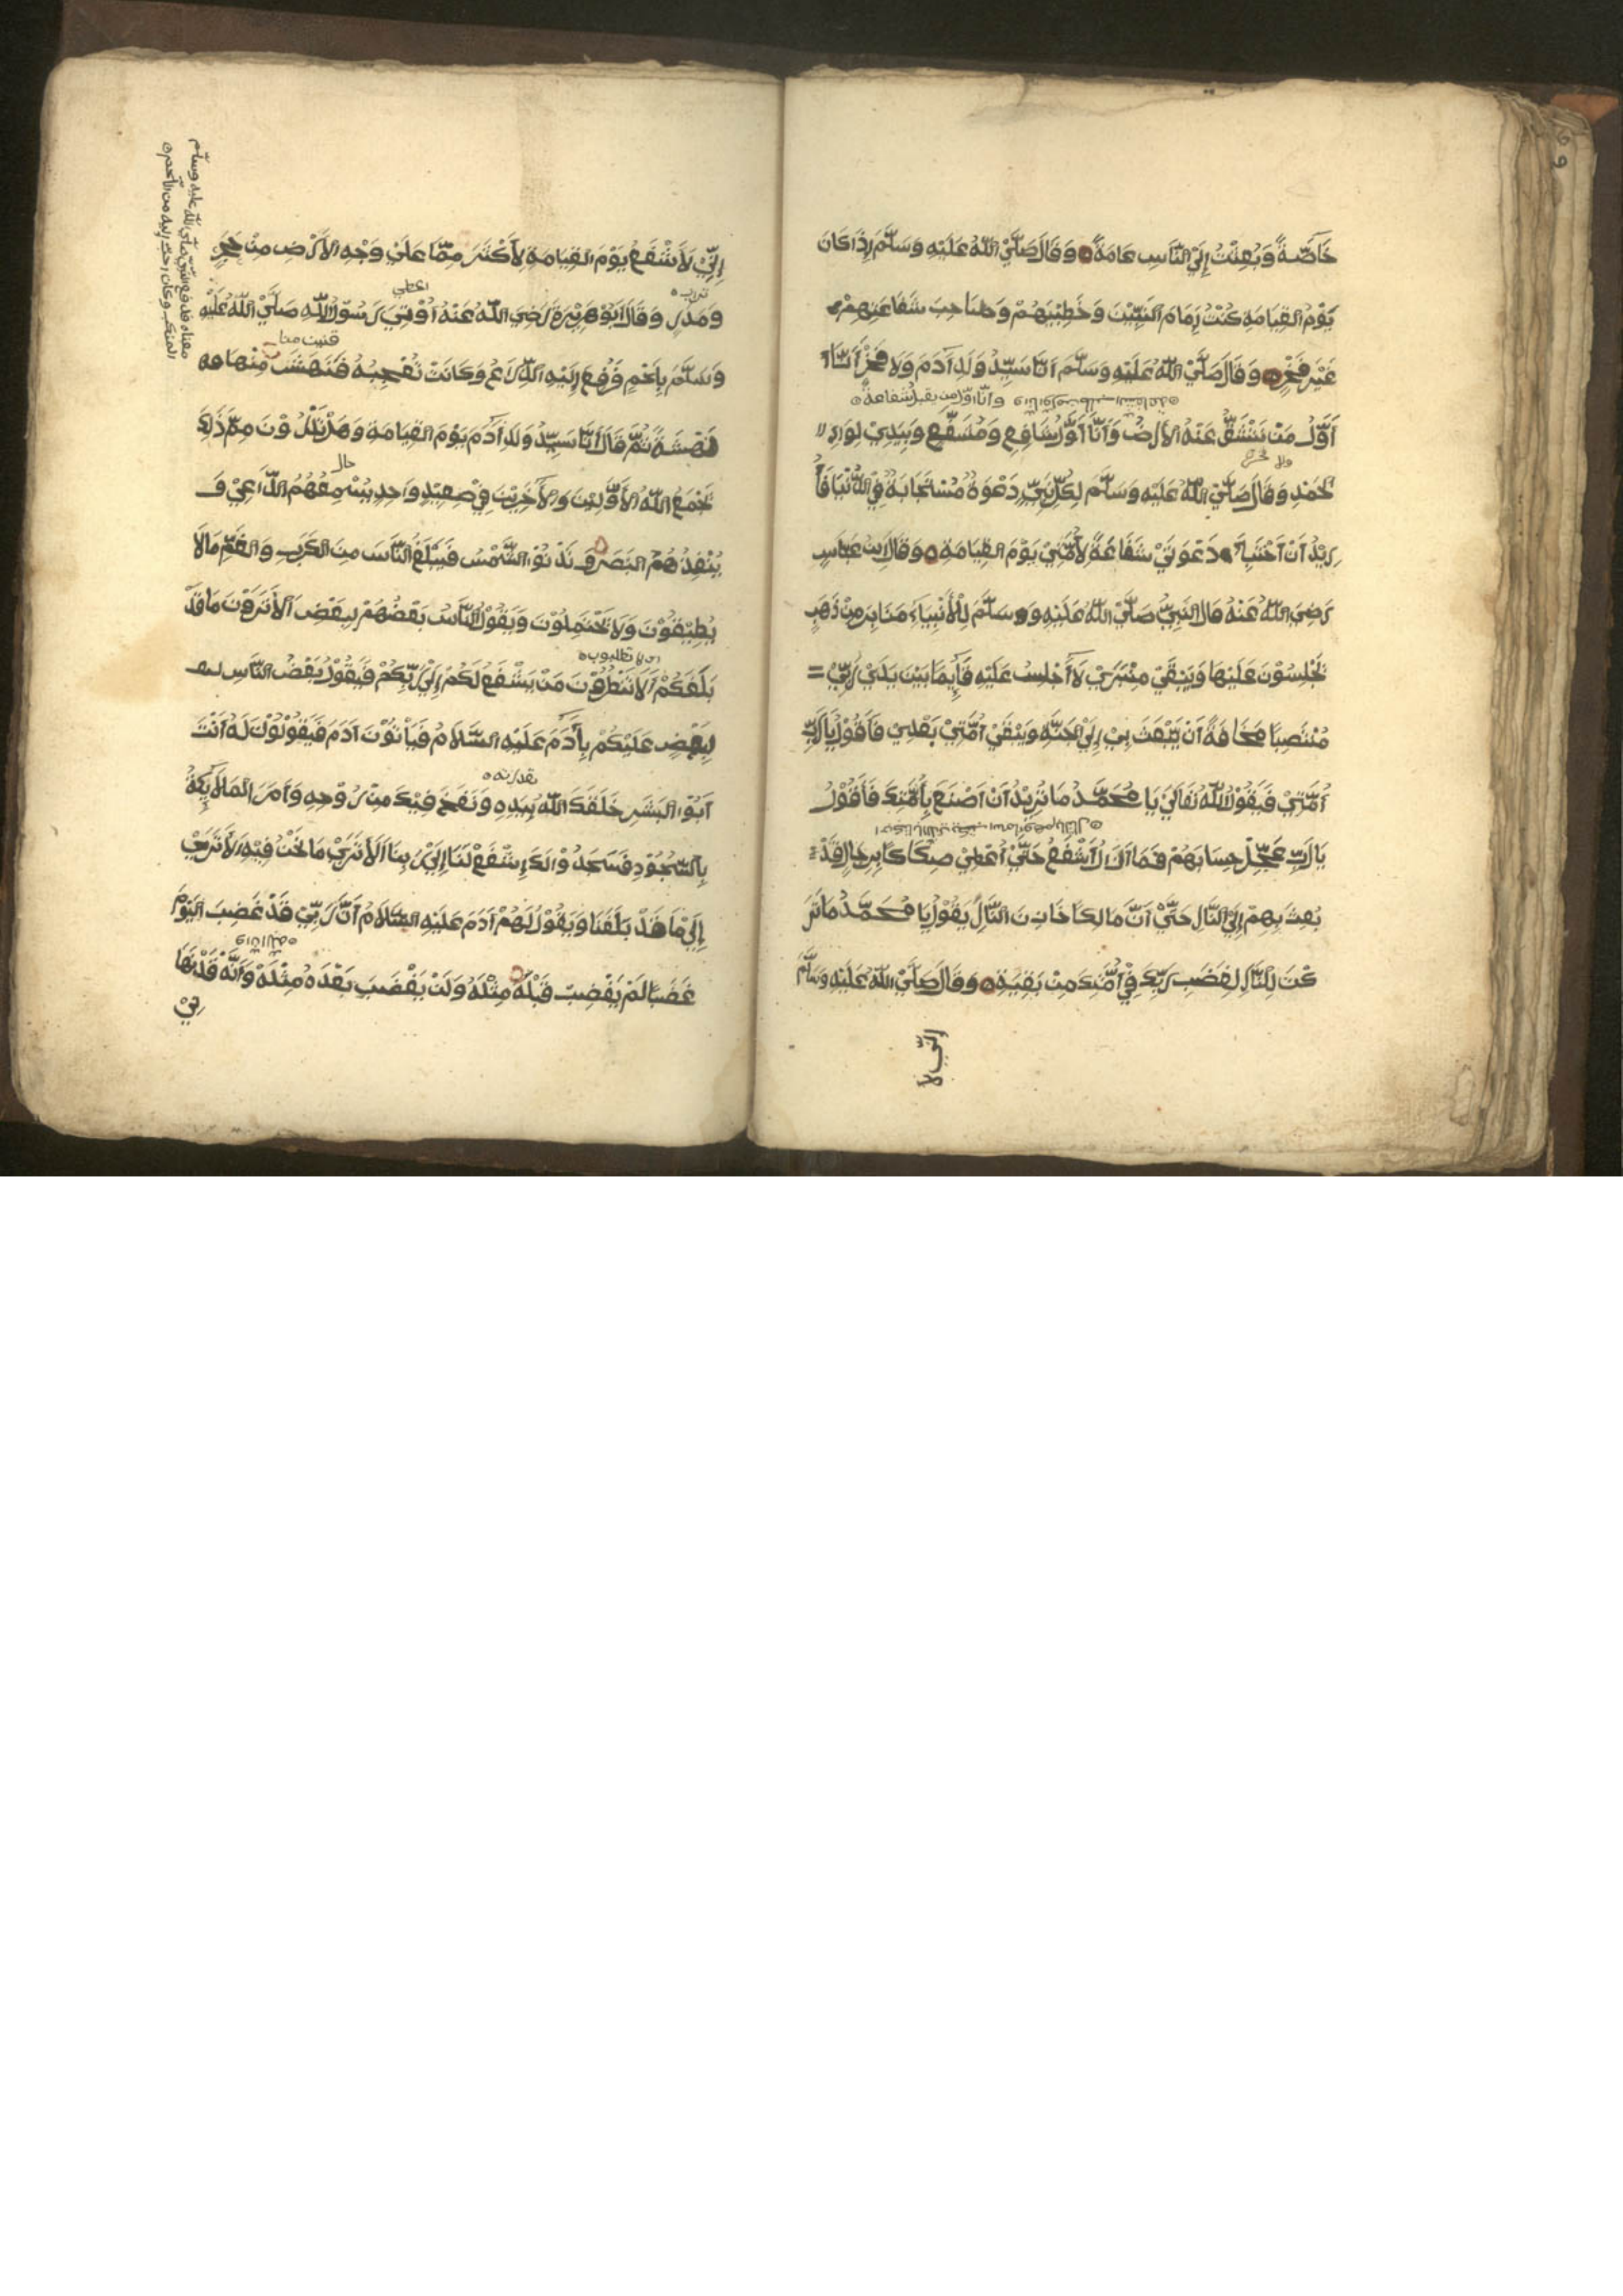 خَاصَّةً وَبُعِثْتُ إِلَى النَّاسِ عَامَةً وَقَالَ صَلَّيْ اللّٰهُ عَلَيْهِ وَسَلَّمَ إِذَا كَانَ
يَوْمُ القِيَامَةِ كُنْتُ إِمَامَ النَّبِيِّيْنَ وَخَطِيْبَهُمْ وَصَاحِبَ شَفَاعَتِهِمْ
غَيْرَ فَخْرٍ وَقَالَ صَلَّيْ اللّٰهُ عَلَيْهِ وَسَلَّمَ أَنَا سَيِّدُ وَلَدِ آدَمَ وَلَا فَخْرَ أَنَا
وأنا أول من يطلب الشفاعة وأنا أول من يقبل شفاعة
أَوَّلُ مَنْ تَنْشَقُّ عَنْهُ الأَرْضُ وَأَنَا أَوَّلُ شَافِعٍ وَمُشَفَّعٍ وَبِيَدِيْ لِوَاءُ ال
ولا فخر
حَمْدِ وَقَالَ صَلَّيْ اللّٰهُ عَلَيْهِ وَسَلَّمَ لِكُلِّ نَبِيٍّ دَعْوَةٌ مُسْتَجَابَةٌ فِي الدُّنْيَا فَأُ
رِيْدُ أَنْ أَخْتَبِأَ دَعْوَتِيْ شَفَاعَةً لِأُمَّتِيْ يَوْمَ القِيَامَةِ وَقَالَ ابْنُ عَبَّاسٍ
رَضِيَ اللّٰهُ عَنْهُ قَالَ النَّبِيُّ صَلَّيْ اللّٰهُ عَلَيْهِ وَسَلَّمَ لِلْأَنْبِيَاءِ مَنَابِرُ مِنْ ذَهَبٍ
يَجْلِسُوْنَ عَلَيْهَا وَيَبْقَيْ مِنْبَرِيْ لَا أَجْلِسُ عَلَيْهِ قَائِمًا بَيْنَ يَدَيْ رَبِّيْ =
مُنْتَصِبًا مَخَافَةً أَنْ يَبْعَثَ بِيْ إِلَي الجَنَّةِ وَيَبْقَيْ أُمَّتِيْ بَعْدِيْ فَأَقُوْلُ يَا رَبِّ
أُمَّتِيْ فَيَقُوْلُ اللّٰهُ تَعَالَيْ يَا مُحَمَّدُ مَا تُرِيْدُ أَنْ أَصْنَعَ بِأُمَّتِكَ فَأَقُوْلُ
يَا رَبِّ عَجِّلْ حِسَابَهُمْ فَمَا أَزَالُ أَشْفَعُ حَتَّيْ أُعْطِيَ صِكَاكًا بِرِجَالٍ قَدْ =
بُعِثَ بِهِمْ إِلَي النَّارِ حَتَّيْ أَنَّ مَالِكًا خَازِنَ النَّارِ يَقُوْلُ يَا مُحَمَّدُ مَا تَرَ
كْتَ لِلنَّارِ لِغَضَبِ رَبِّكَ فِيْ أُمَّتِكَ مِنْ بَقِيَةٍ وَقَالَ صَلَّيْ اللّٰهُ عَلَيْهِ وَسَلَّمَ
إِنِّي لَا
إِنِّيْ لَأَشْفَعُ يَوْمَ القِيَامَةِ لِأَكْثَرَ مِمَّا عَلَيْ وَجْهِ الأَرْضِ مِنْ حَجَرٍ
تراب
اعطي
وَمَدَرٍ وَقَالَ أَبُوْ هُرَيْرَةَ رَضِيَ اللّٰهُ عَنْهُ أُوْتِيَ رَسُوْلُ اللّٰهِ صَلَّيْ اللّٰهُ عَلَيْهِ
وَسَلَّمَ بِلَحْمٍ فَرُفِعَ إِلَيْهِ الذِّرَاعُ وَكَانَتْ تُعْجِبُهُ فَنَهَشَ مِنْهَا
نَهْشَةً ثُمَّ قَالَ أَنَا سَيِّدُ وَلَدِ آدَمَ يَوْمَ القِيَامَةِ وَهَلْ تَدْرُوْنَ مِمَّ ذٰلِكَ
حال
يَجْمَعُ اللّٰهُ الأَوَّلِيْنَ وَالْآخِرِيْنَ فِيْ صَعِيْدٍ وَاحِدٍ يُسْمِعُهُمُ الدَّاعِيْ وَ
يُنْفِذُهُمُ البَصَرُ وَتَدْنُوْ الشَّمْسُ فَيَبْلَغُ النَّاسَ مِنَ الكَرْبِ وَالغَمِّ مَا لَا
يُطِيْقُوْنَ وَلَا يَحْتَمِلُوْنَ وَيَقُوْلُ النَّاسُ بَعْضُهُمْ لِبَعْضٍ أَلَا تَرَوْنَ مَا قَدْ
بَلَغَكُمْ أَلَا تَنْظُرُوْنَ مَنْ يَشْفَعُ لَكُمْ إِلَيْ رَبِّكُمْ فَيَقُوْلُ بَعْضُ النَّاسِ
لِبَعْضٍ عَلَيْكُمْ بِآدَمَ عَلَيْهِ السَّلَامُ فَيَأْتُوْنَ آدَمَ فَيَقُوْلُوْنَ لَهُ أَنْتَ
بقدرته
أَبُوْ البَشَرِ خَلَقَكَ اللّٰهُ بِيَدِهِ وَنَفَخَ فِيْكَ مِنْ رُوْحِهِ وَأَمَرَ المَلَائِكَةَ
بِالسُّجُوْدِ فَسَجَدُوْا لَكَ إِشْفَعْ لَنَا إِلَيْ رَبِّنَا أَلَا تَرَيْ مَا نَحْنُ فِيْهِ أَلَا تَرَيْ
إِلَيْ مَا قَدْ بَلَغَنَا وَيَقُوْلُ لَهُمْ آدَمُ عَلَيْهِ السَّلَامُ أَنَّ رَبِّيْ قَدْ غَضِبَ اليَوْمَ
غَضَبًا لَمْ يَغْضِبْ قَبْلَهُ مِثْلَهُ وَلَنْ يَغْضَبَ بَعْدَهُ مِثْلَهُ وَأَنَّهُ قَدْ نَهَا
نِيْ